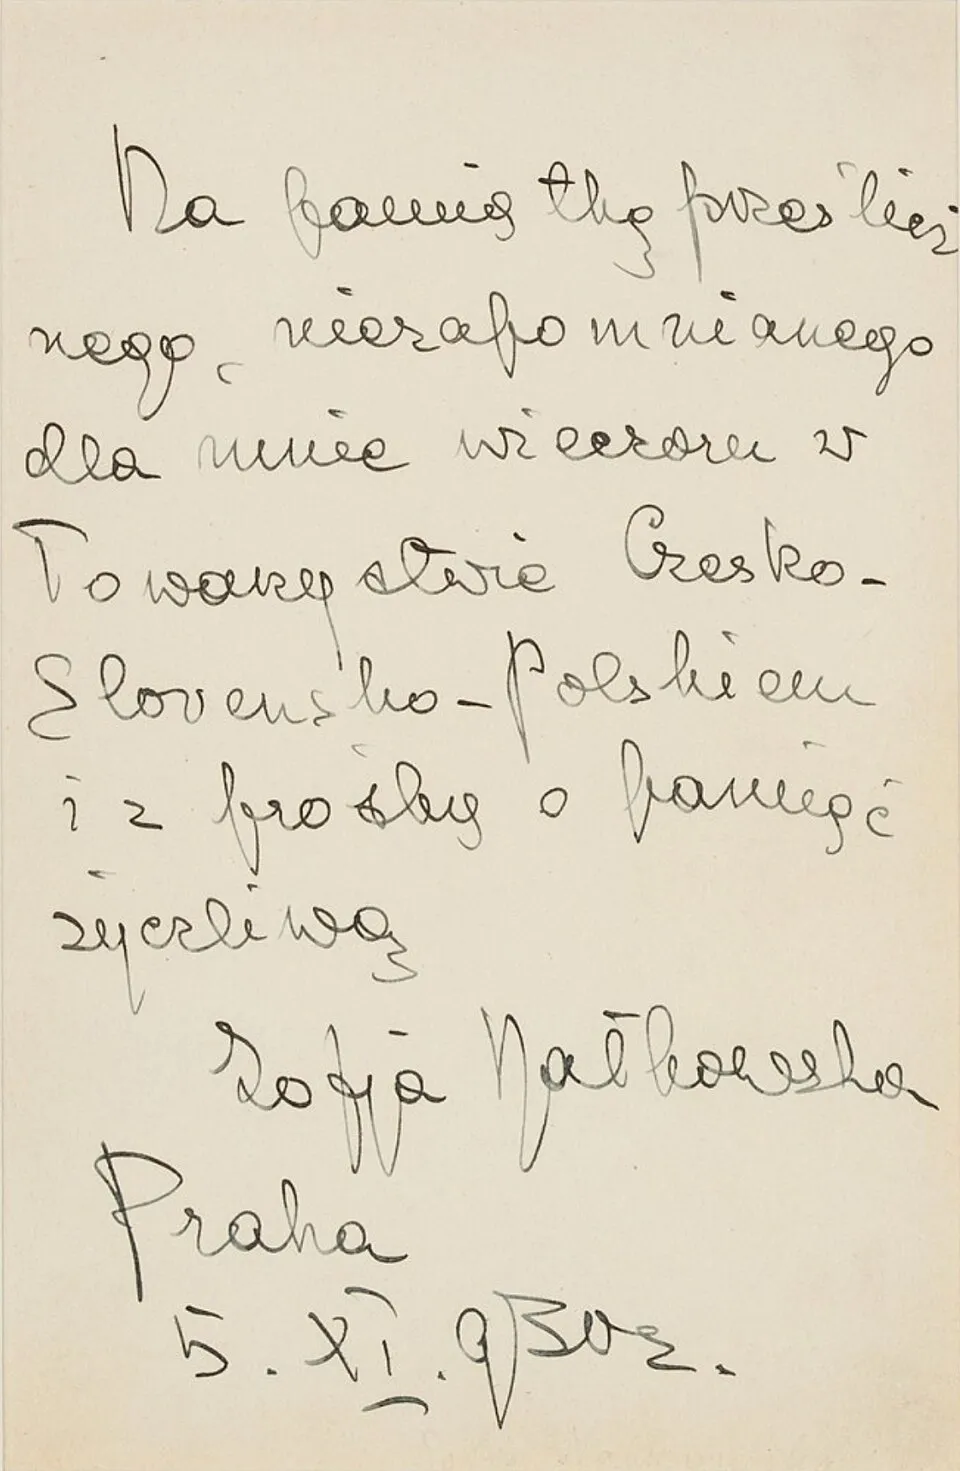 Na pamiątkę prześlicz
nego, niezapomnianego
dla mnie wieczoru w
Towarzystwie Czesko-
Slovensko-Polskiem
i z prośbą o pamięć
życzliwą
Zofja Nałkowska
Praha
5. XI. 930r.